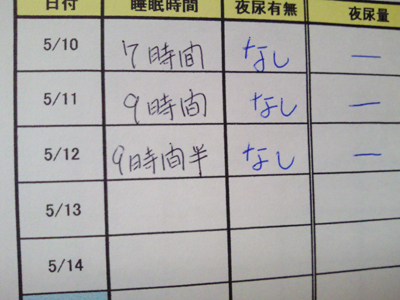 日付 睡眠時間 夜尿有無 夜尿量
5/10 7時間 なし ―
5/11 9時間 なし ―
5/12 9時間半 なし ―
5/13
5/14